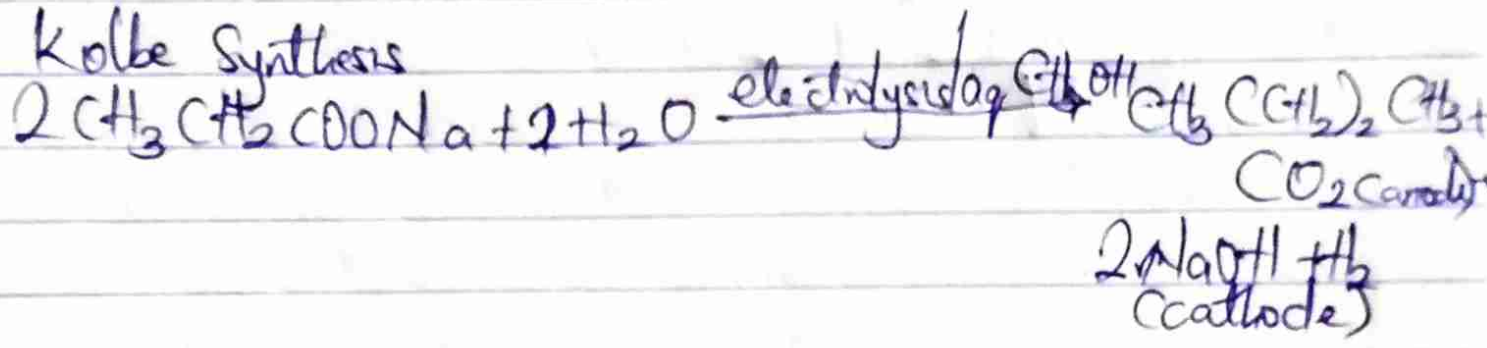 Kolbe Synthesis
2CH₃CH₂COONa + 2H₂O electrolysis/aq CH₃OH → CH₃(CH₂)₂CH₃ +
CO₂ (anode)
2NaOH + H₂
(cathode)